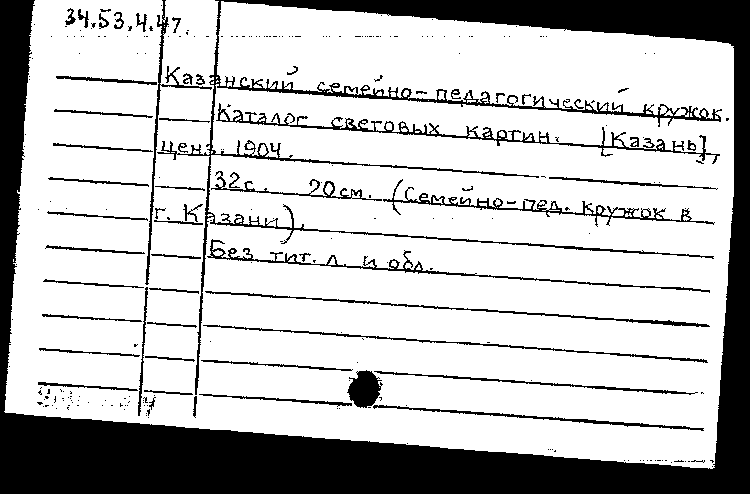 34.53.4.47.
Казанский семейно-педагогический кружок.
Каталог световых картин. [Казань],
ценз. 1904.
32с. 20см. (Семейно-пед. кружок в
г. Казани).
Без тит. л. и обл.